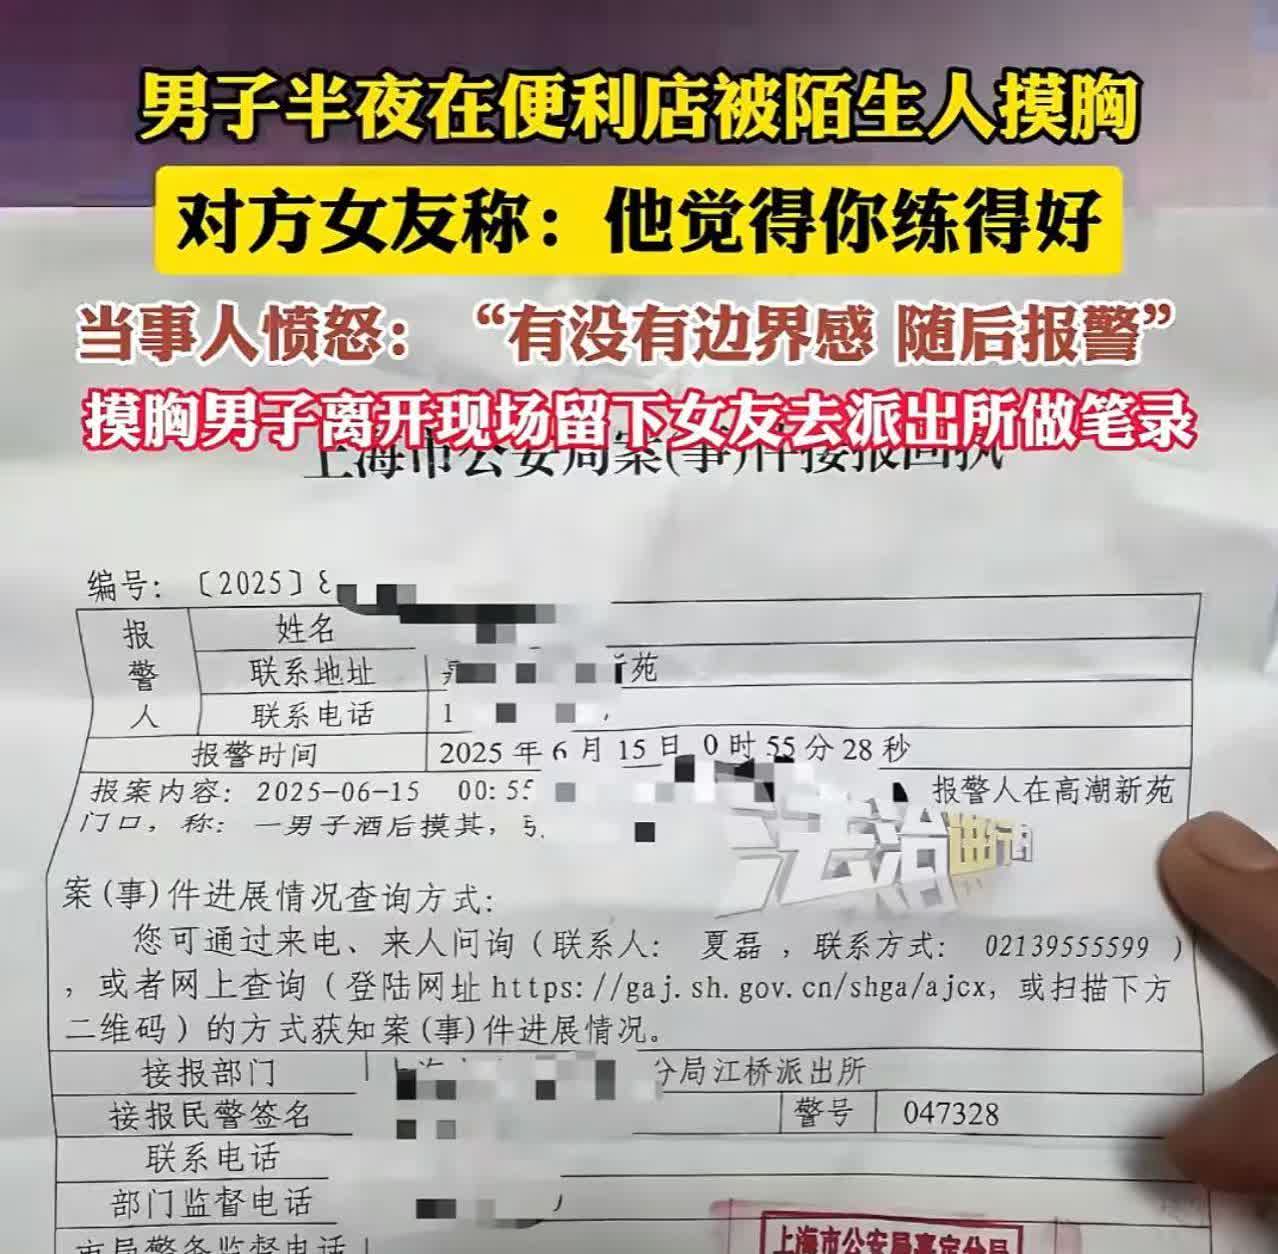 男子半夜在便利店被陌生人摸胸
对方女友称：他觉得你练得好
当事人愤怒：“有没有边界感 随后报警”
摸胸男子离开现场留下女友去派出所做笔录
上海市公安局案(事)件接报回执
编号：〔2025〕
报警人
姓名
联系地址 苑
联系电话 1
报警时间 2025 年 6 月 15 日 0 时 55 分 28 秒
报案内容：2025-06-15 00:55 报警人在高潮新苑
门口，称：一男子酒后摸其，
法治
案(事)件进展情况查询方式：
您可通过来电、来人问询（联系人： 夏磊 ，联系方式： 02139555599 ）
，或者网上查询（登陆网址 https://gaj.sh.gov.cn/shga/ajcx，或扫描下方
二维码）的方式获知案(事)件进展情况。
接报部门 上海 分局江桥派出所
接报民警签名 警号 047328
联系电话
部门监督电话
市局警务监督电话
上海市公安局嘉定分局